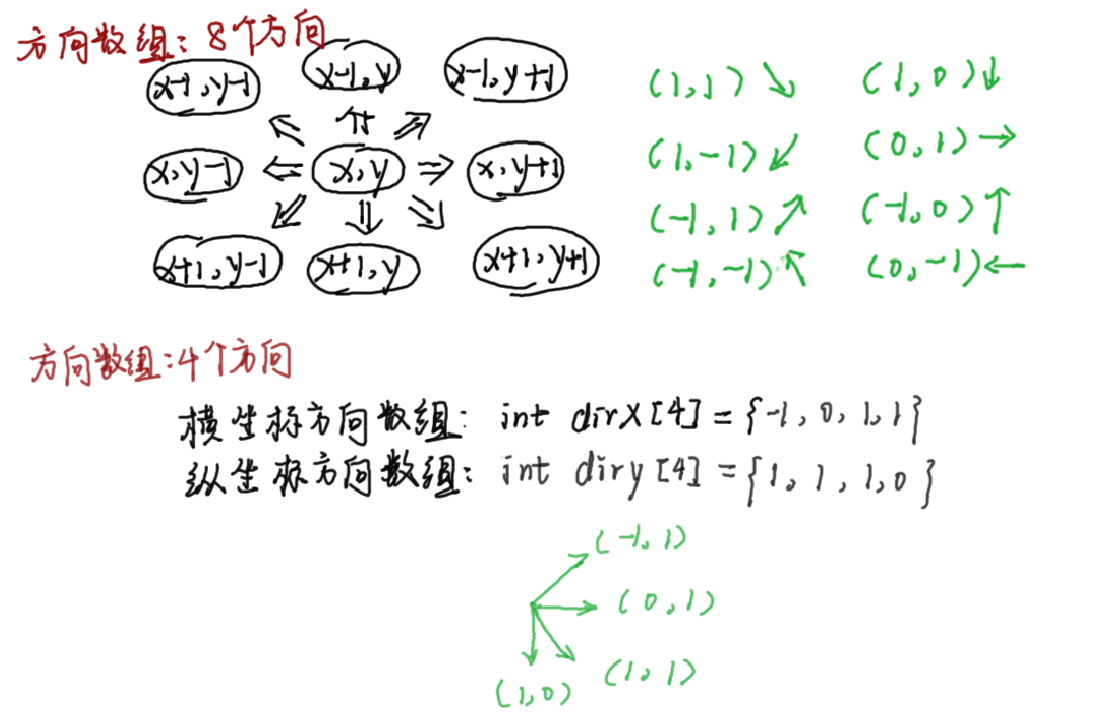 方向数组：8个方向
x-1,y-1 x-1,y x-1,y+1
x,y-1 x,y x,y+1
x+1,y-1 x+1,y x+1,y+1
(1,1)↘ (1,0)↓
(1,-1)↙ (0,1)→
(-1,1)↗ (-1,0)↑
(-1,-1)↖ (0,-1)←
方向数组：4个方向
横坐标方向数组：int dirX[4]={-1,0,1,1}
纵坐标方向数组：int diry[4]={1,1,1,0}
(-1,1)
(0,1)
(1,1)
(1,0)